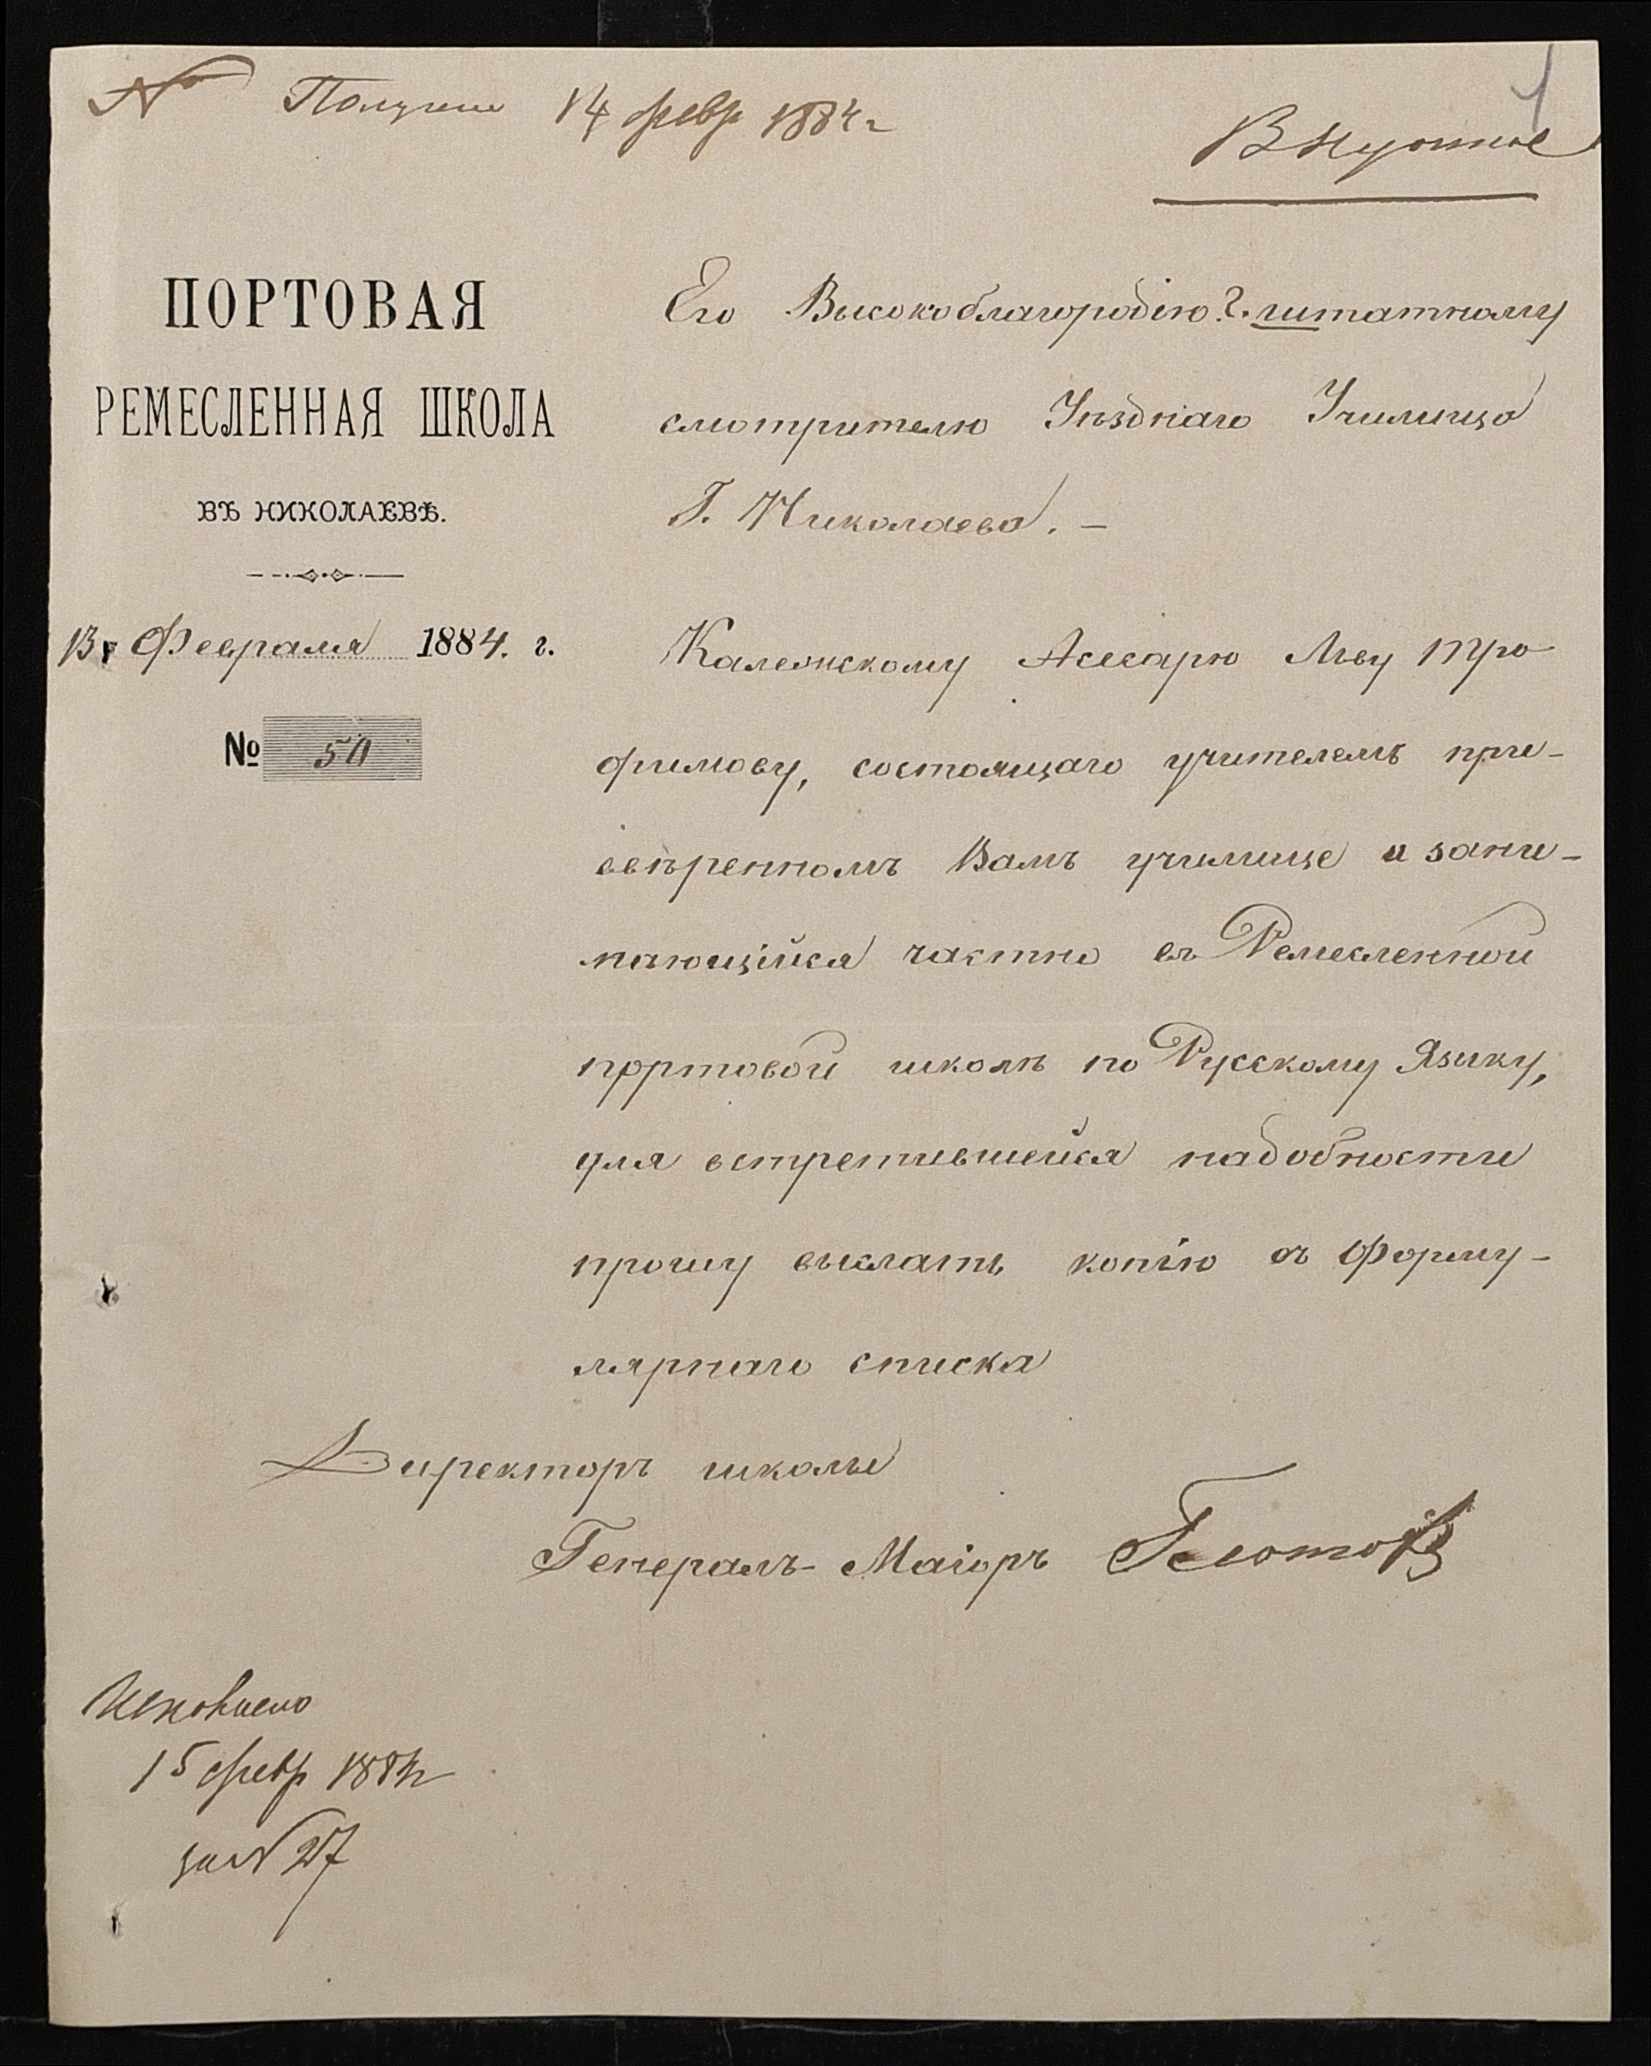 № Получено 14 февр 1884 г
1
В нужное
ПОРТОВАЯ
РЕМЕСЛЕННАЯ ШКОЛА
ВЪ НИКОЛАЕВѢ.
13 Февраля 1884. г.
№ 50
Его Высокоблагородію Г. штатному
смотрителю Уѣзднаго Училища
Г. Николаева. –
Калежскому Асесарю Льву Тро
фимову, состоящаго учителемъ при-
ввѣренномъ Вамъ училище и зани-
мающійся частно въ Ремесленной
портовой школѣ по Русскому Языку,
для встретившейся надобности
прошу выслать копію съ Форму-
лярнаго списка
Директоръ школы
Генералъ-Маіоръ
Исполнено
15 февр 1884 г
за № 27